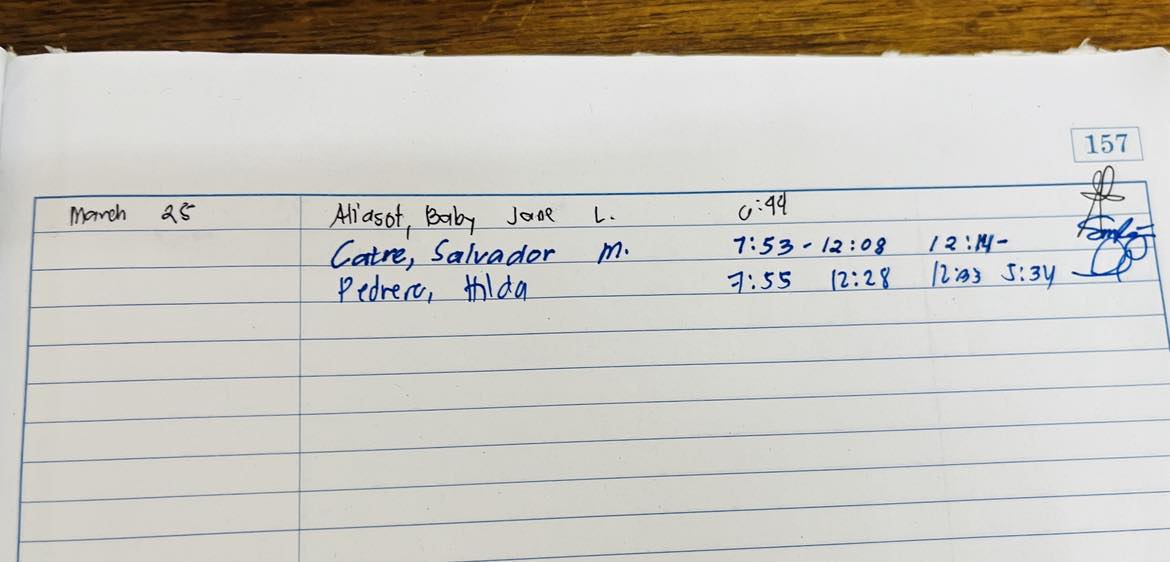 157
March 25 Aliasot, Baby Jane L. 6:44
Catre, Salvador M. 7:53 - 12:08 12:14-
Pedrero, Hilda 7:55 12:28 12:33 5:34